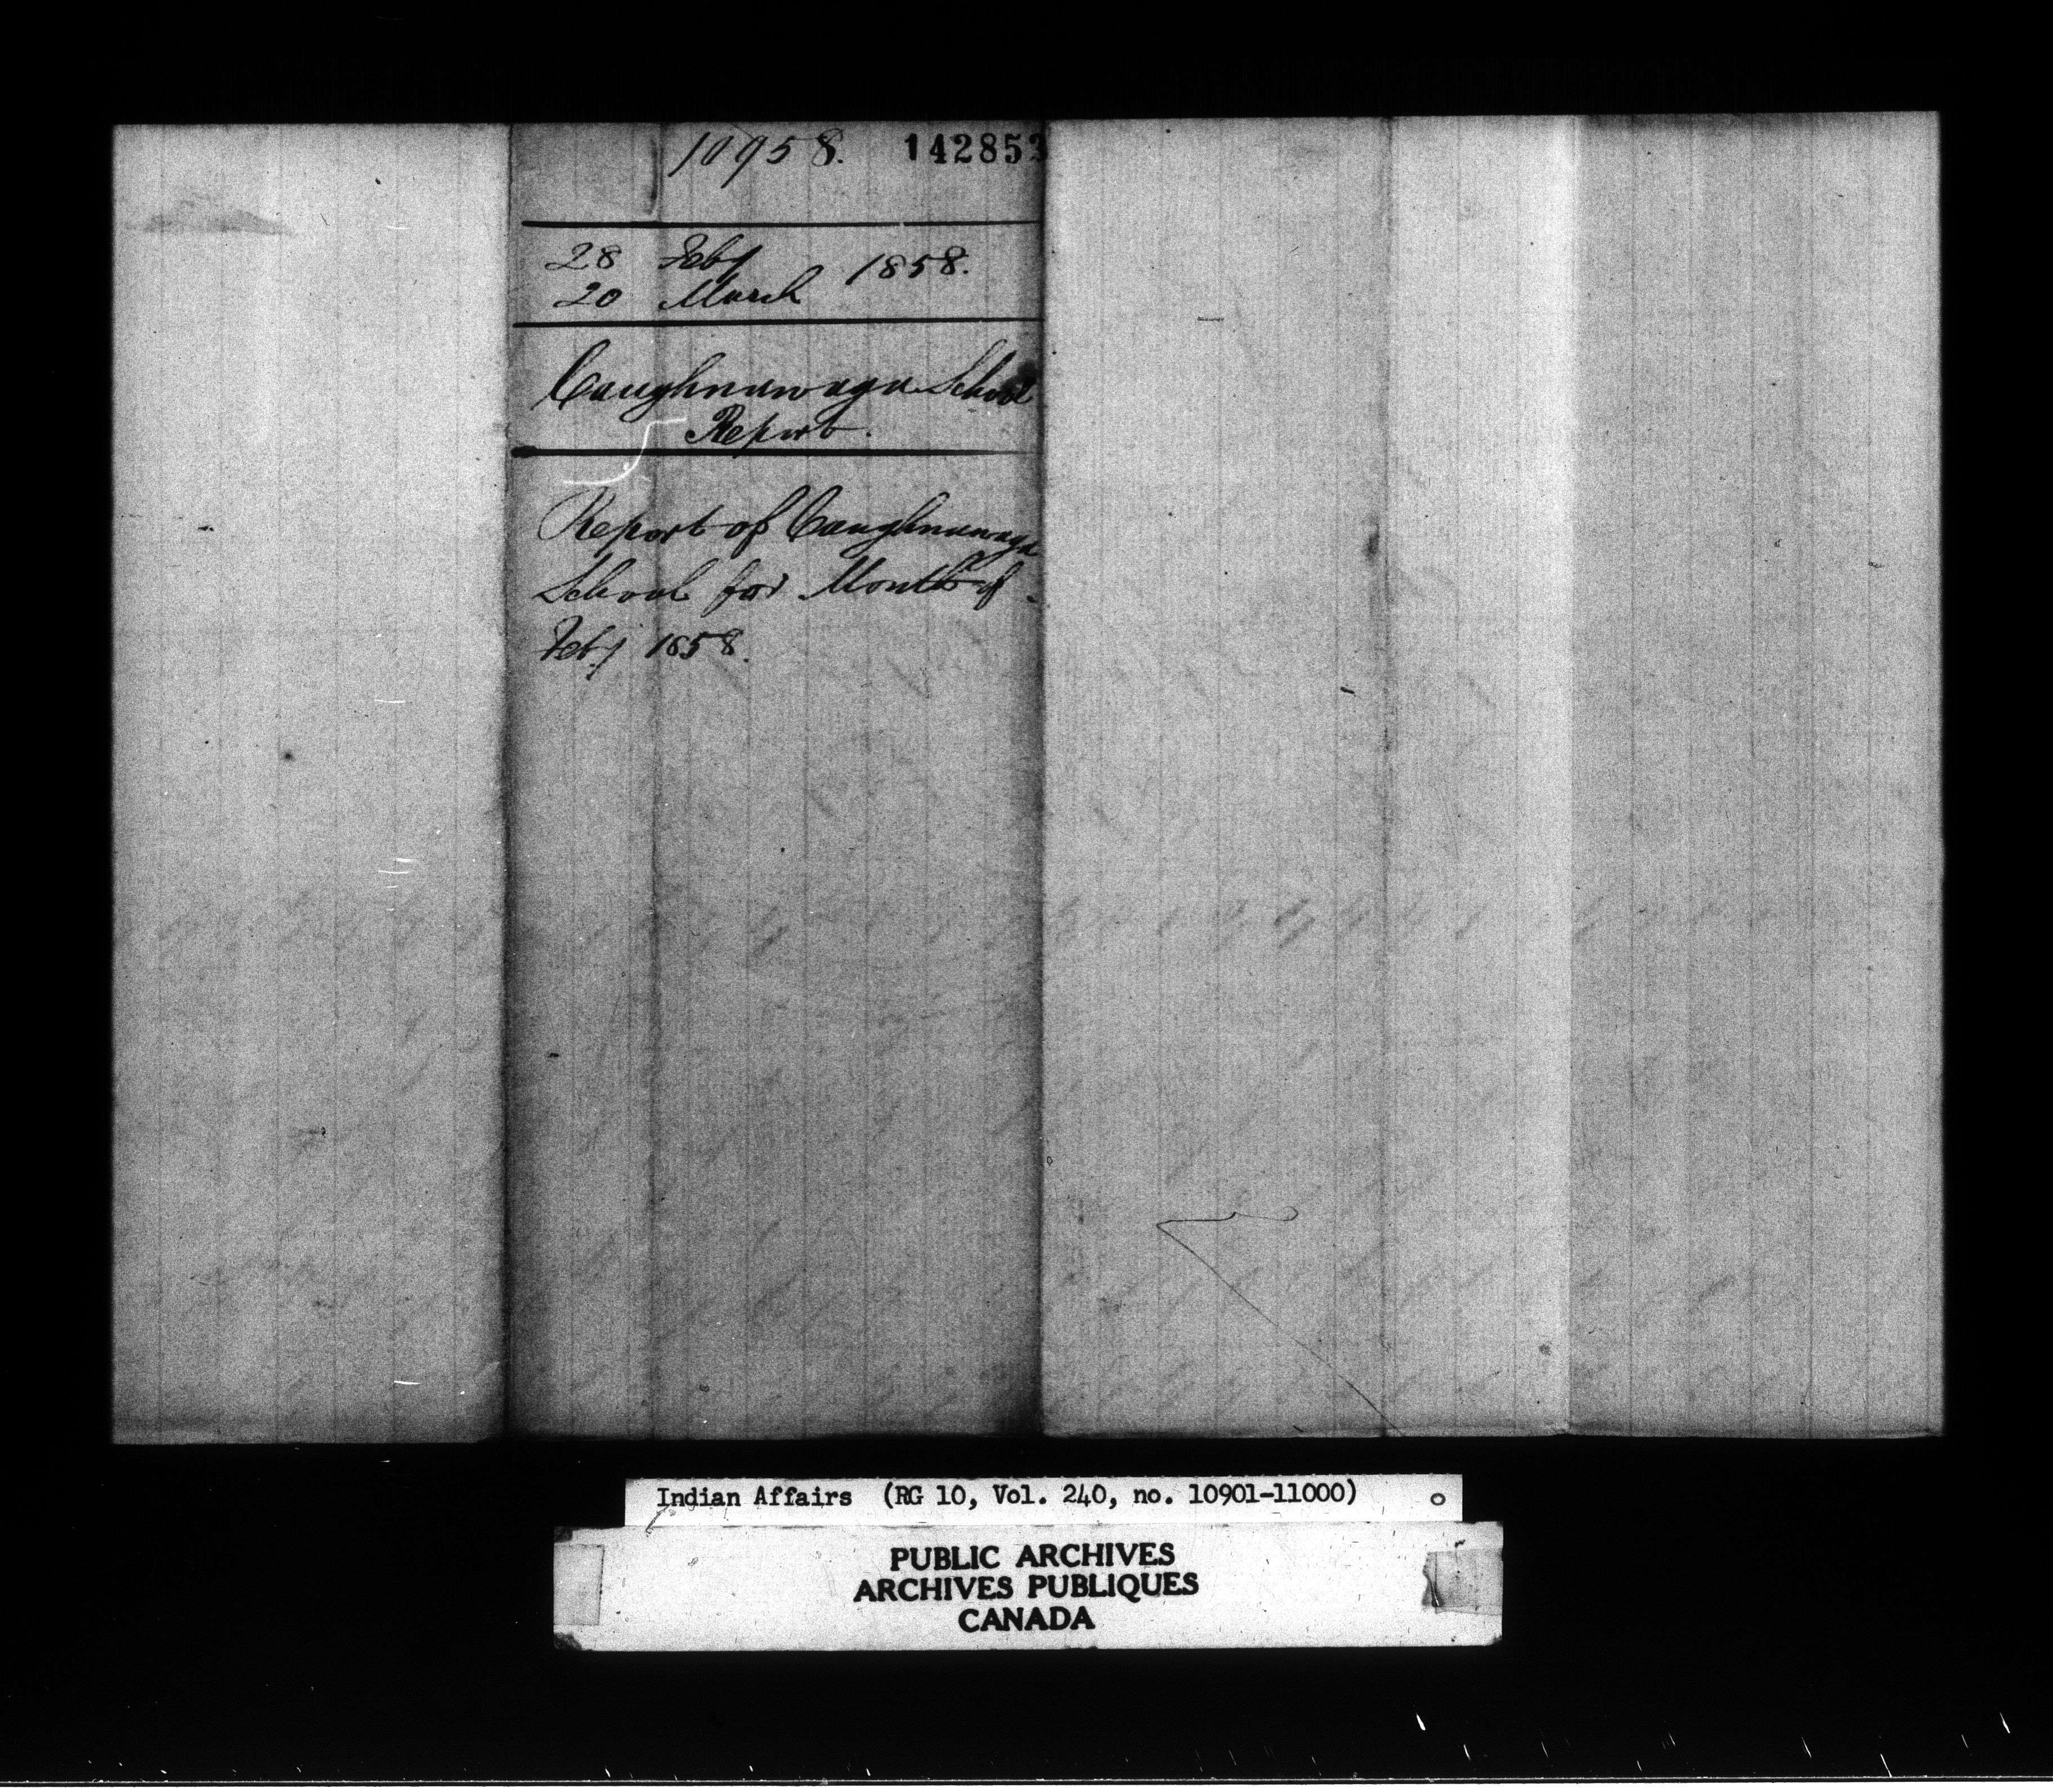 10958. 142853
28 Feby
1858.
20 March
Caughnawaga School
Report.
Report of Caughnawaga
School for Month of
Feby 1858.
Indian Affairs (RG 10, Vol. 240, no. 10901-11000)
PUBLIC ARCHIVES
ARCHIVES PUBLIQUES
CANADA